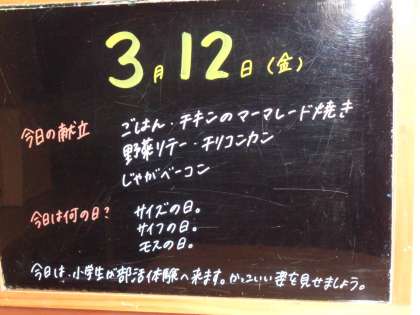 3月12日(金)
今日の献立 ごはん・チキンのマーマレード焼き
野菜リテー・チリコンカン
じゃがベーコン
今日は何の日? サイズの日。
サイフの日。
モスの日。
今日は、小学生が部活体験へ来ます。かっこいい姿を見せましょう。